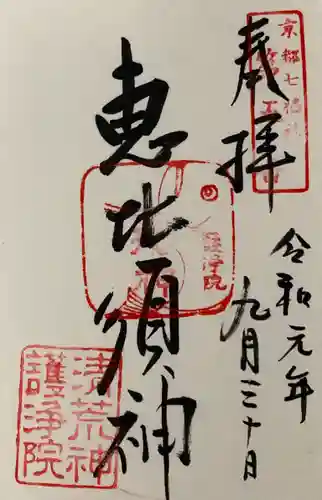 奉拝
令和元年
九月三十日
恵比須神
清荒神
護浄院
護浄院